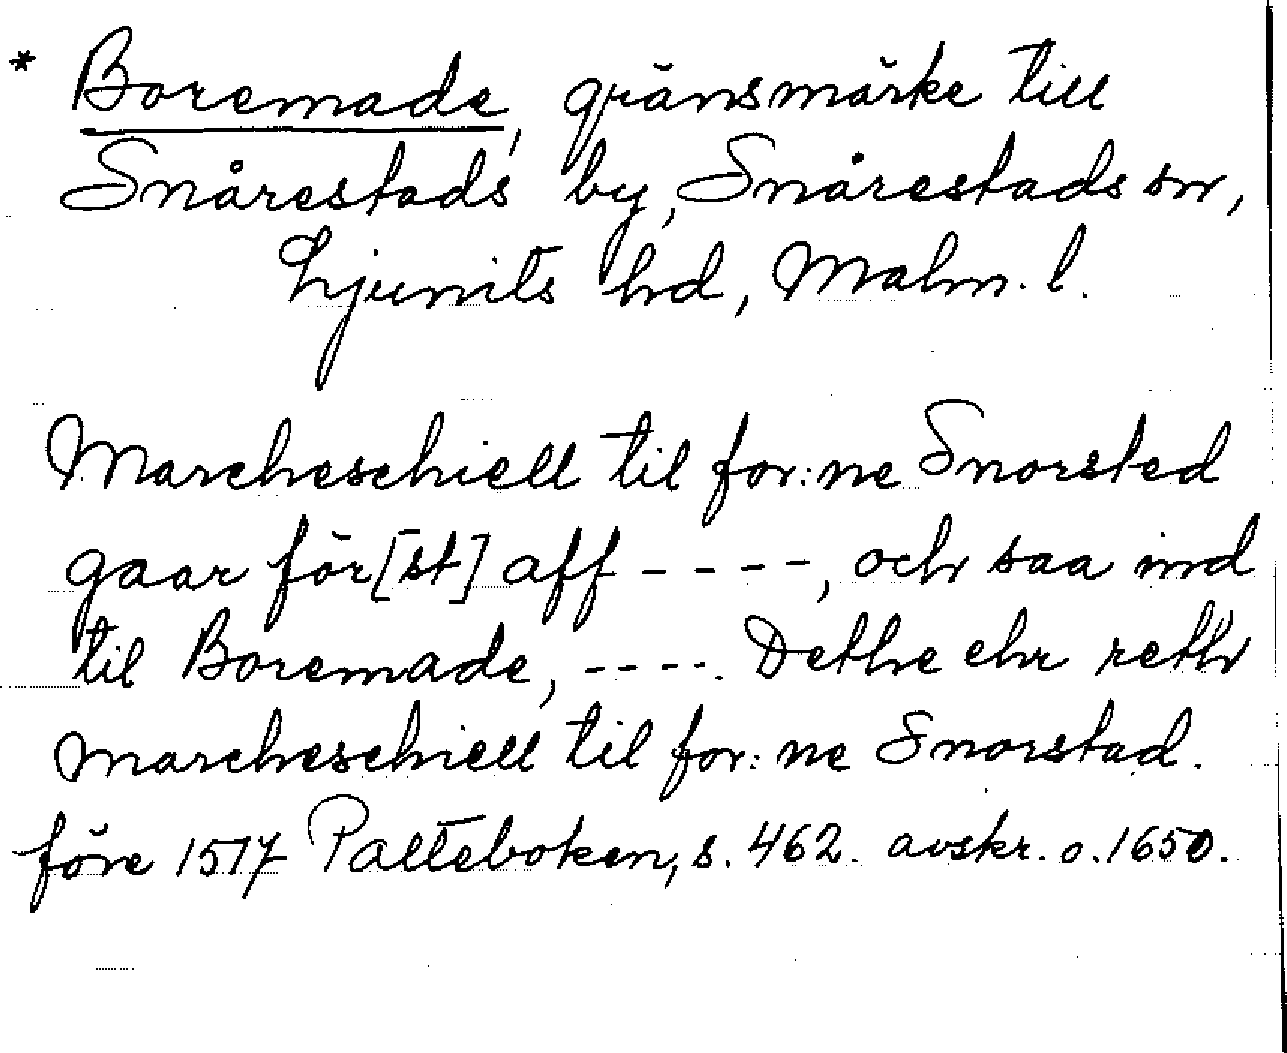 * Boremade, gränsmärke till
Snårestads by, Snårestads sn,
Ljunits hd, Malm. l.
Marcheschiell til for:ne Snorsted
gaar för[st] aff - - - -, och saa ind
til Boremade, - - - -. Dethe ehr reth
marcheschiell til for:ne Snorstad.
före 1517 Palteboken, s. 462. avskr. o. 1650.